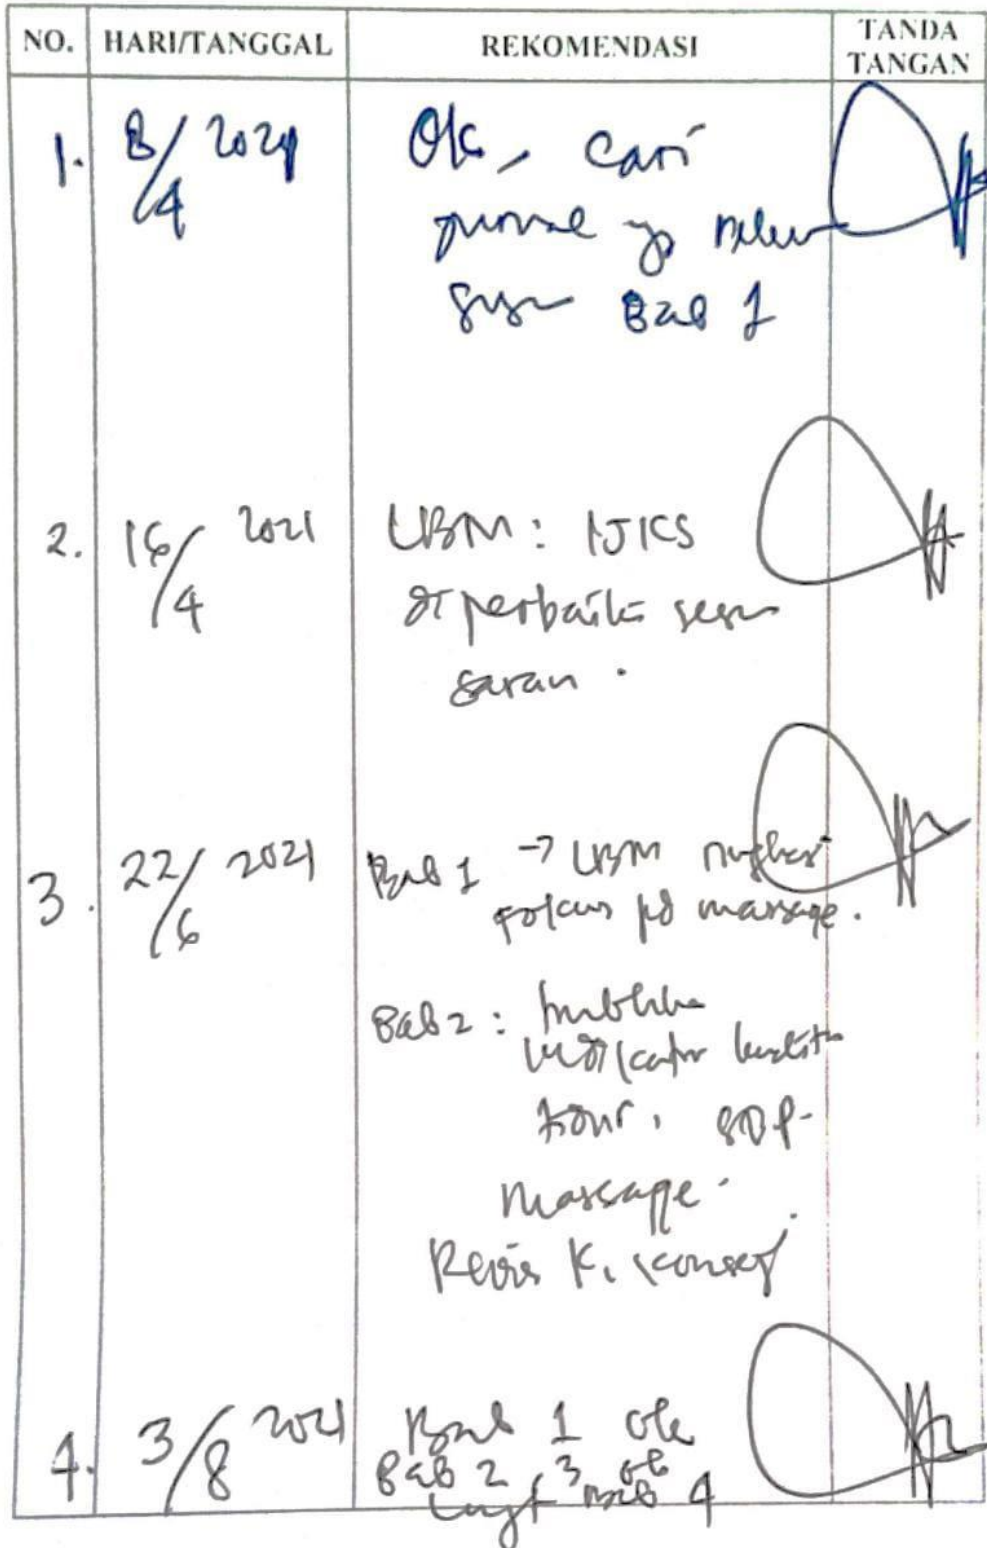 NO. HARI/TANGGAL REKOMENDASI TANDA TANGAN
1. 8/4 2021 Ok, cari
jurnal yg relevan
Bab 1
2. 16/4 2021 LBM: IJKS
diperbaiki sesuai
saran.
3. 22/6 2021 Bab 1 → LBM
fokus pd massage.
Bab 2:
indikator kualitas
tidur, SOP
massage.
Revisi K. konsep
4. 3/8 2021 Bab 1 ok
Bab 2, 3 ok
Lanjut Bab 4